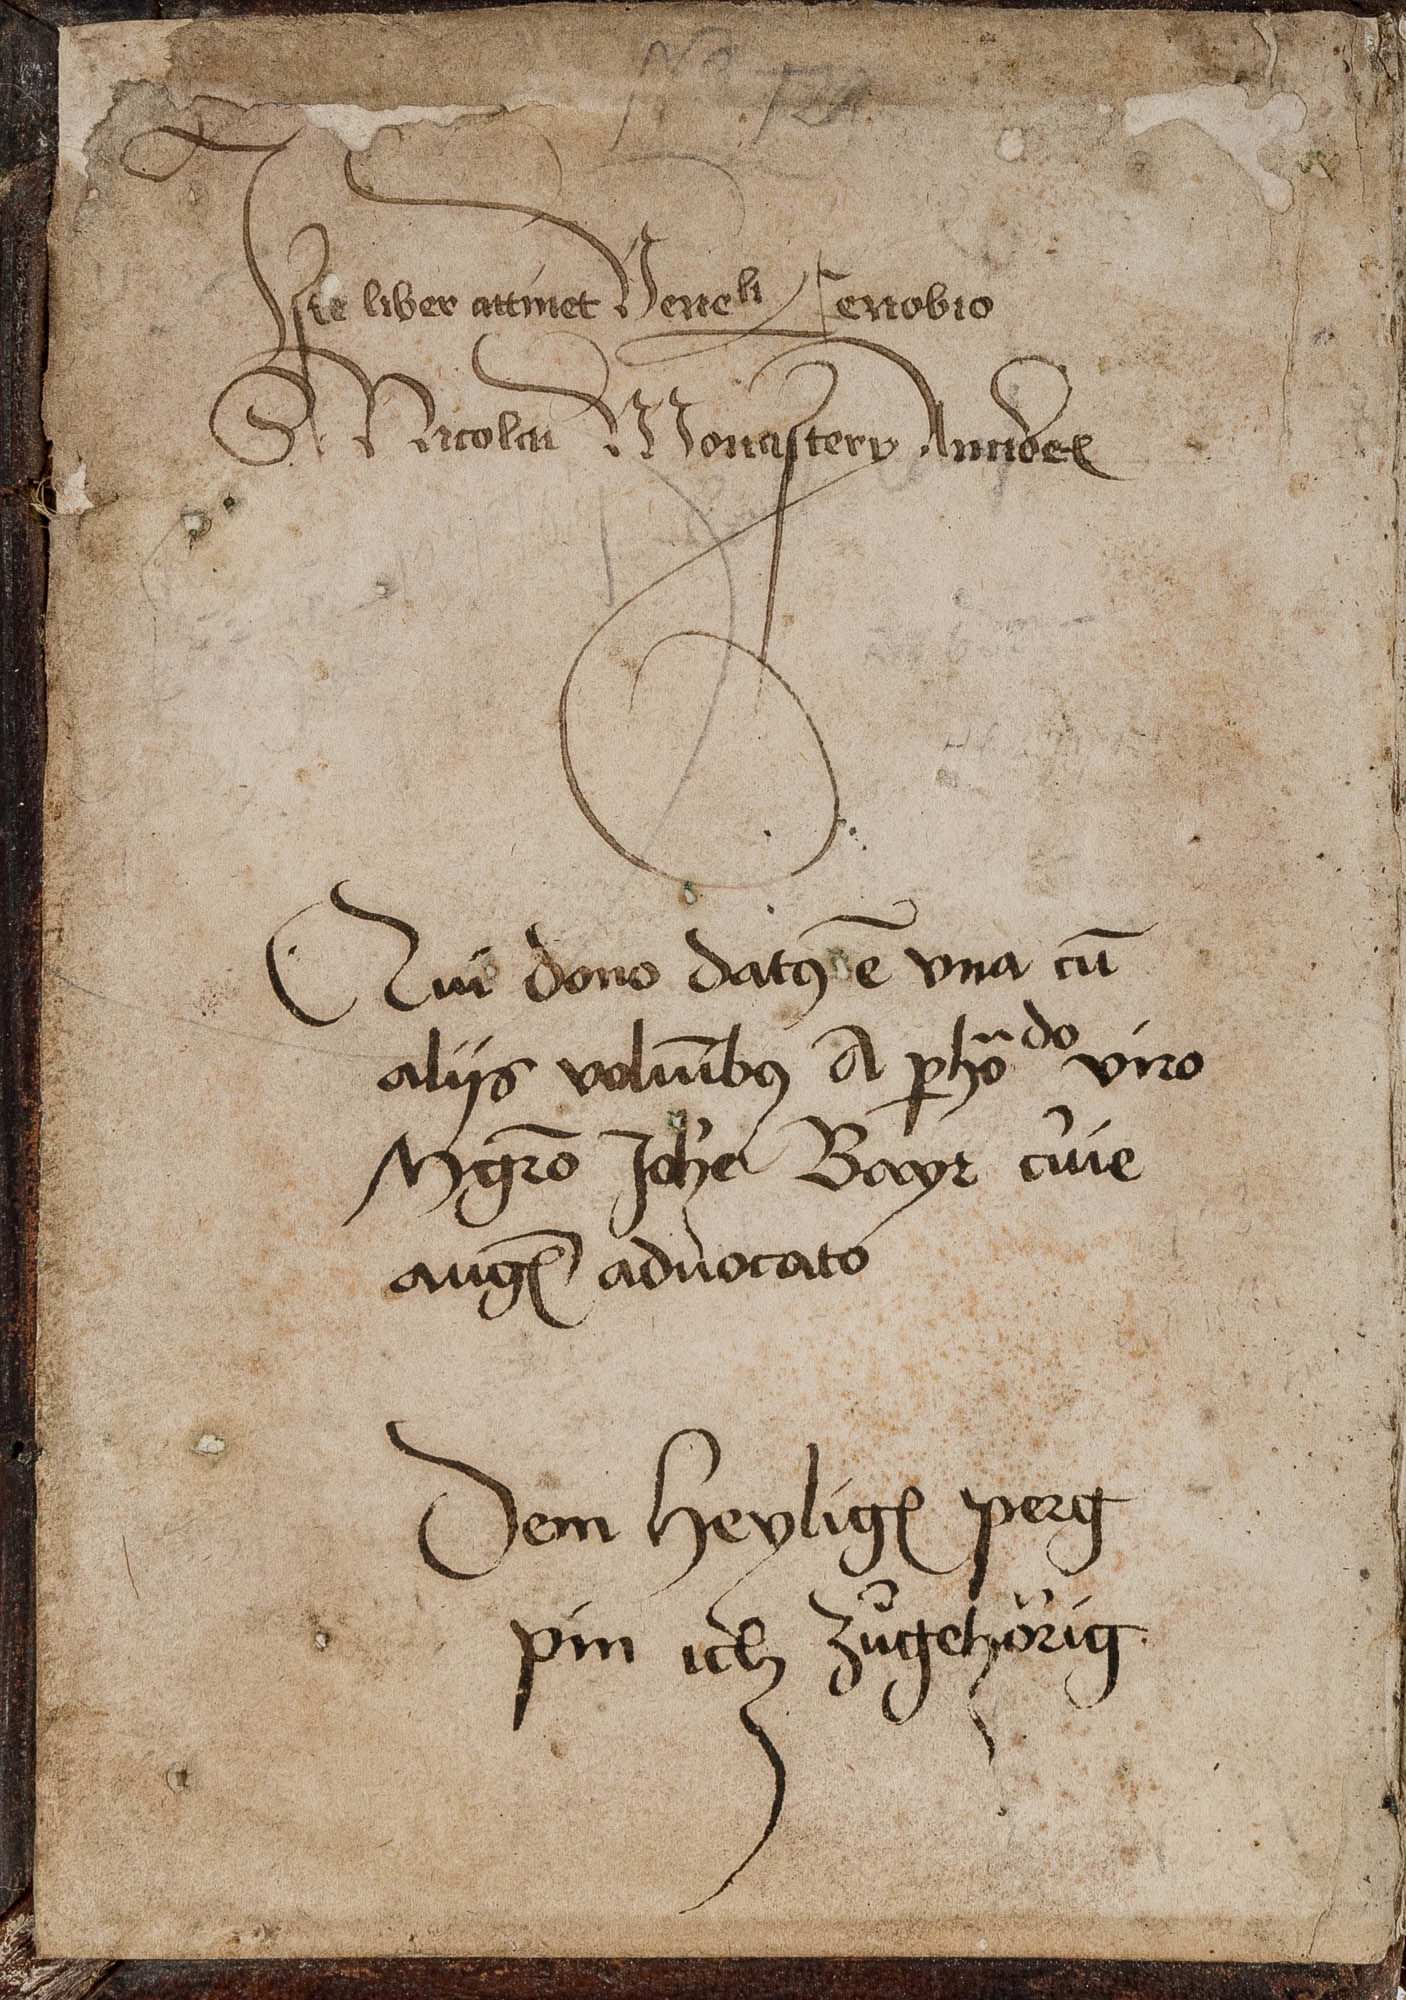 Iste liber attinet Veneli Cenobio
S. Nicolai Monastery Anndex
Qui dono datꝰ ē vna cū
alijs volum̄ibꝰ A ꝑhō do viro
Mgr̄o Joh̄e Bayr cūie
aug᷒ aduocato
Dem heylig᷒ perg
pin ich zůgehörig